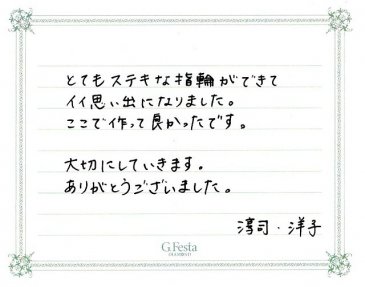 とてもステキな指輪ができて
イイ思い出になりました。
ここで作って良かったです。
大切にしていきます。
ありがとうございました。
淳司・洋子
G.Festa
DIAMOND